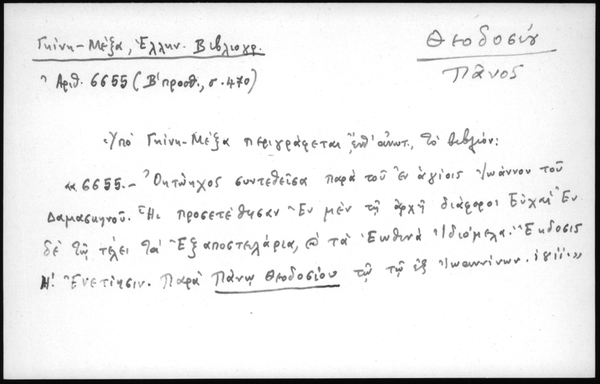 Γκίνη-Μέξα, Ἑλλην. Βιβλιογρ.
Θεοδοσίου
Πᾶνος
Ἀριθ. 6655 (Β' προσθ., σ. 470)
Ὑπό Γκίνη-Μέξα περιγράφεται, ἐπ' ἀνωτ., τό βιβλίον:
«6655.- Ὀκτώηχος συντεθεῖσα παρά τοῦ ἐν ἁγίοις Ἰωάννου τοῦ
Δαμασκηνοῦ. Ἧι προσετέθησαν Ἐν μέν τῇ ἀρχῇ διάφοροι Εὐχαί Ἐν
δέ τῷ τέλει τά Ἐξαποστειλάρια, @ τά Ἑωθινά Ἰδιόμελα. Ἔκδοσις
Η'. Ἐνετίησιν. Παρά Πάνῳ Θεοδοσίου τῷ τῷ ἐξ Ἰωαννίνων.